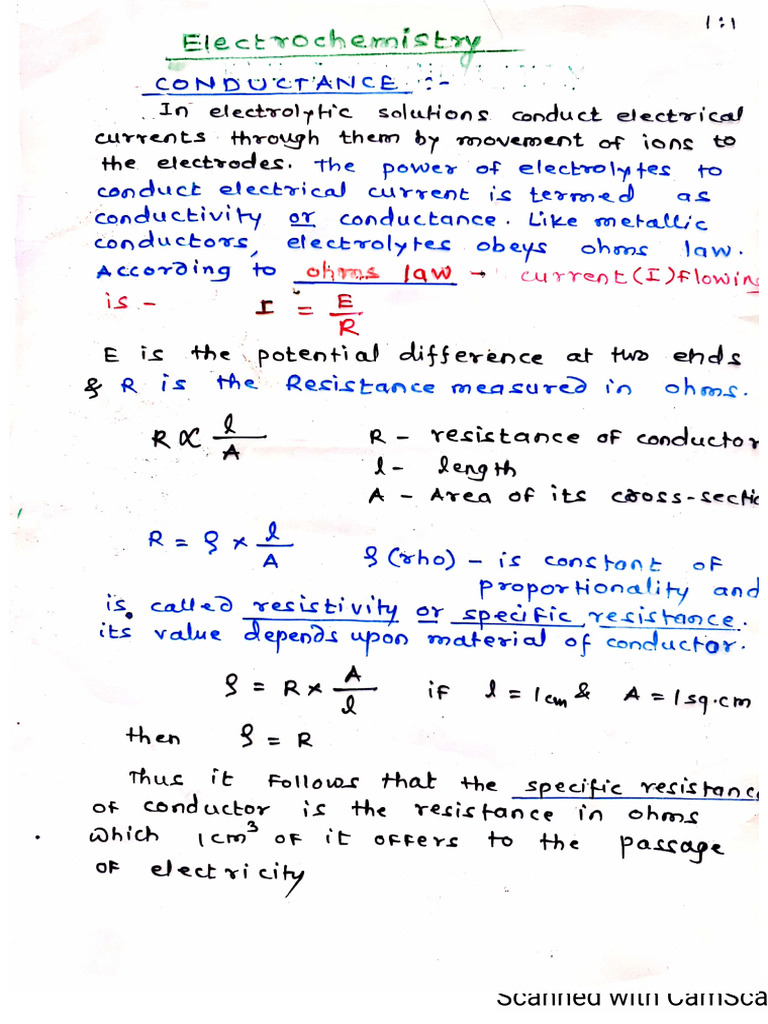 1:1
Electrochemistry
CONDUCTANCE :-
In electrolytic solutions conduct electrical
currents through them by movement of ions to
the electrodes. The power of electrolytes to
conduct electrical current is termed as
conductivity or conductance. Like metallic
conductors, electrolytes obeys ohms law.
According to ohms law → current (I) flowing
is - I = E/R
E is the potential difference at two ends
& R is the Resistance measured in ohms.
R ∝ l/A R - resistance of conductor
l - length
A - Area of its cross-sectio
R = ρ × l/A ρ (rho) - is constant of
proportionality and
is called resistivity or specific resistance.
its value depends upon material of conductor.
ρ = R × A/l if l = 1cm & A = 1sq.cm
then ρ = R
Thus it follows that the specific resistance
of conductor is the resistance in ohms
which 1cm³ of it offers to the passage
of electricity
Scanned with CamSca